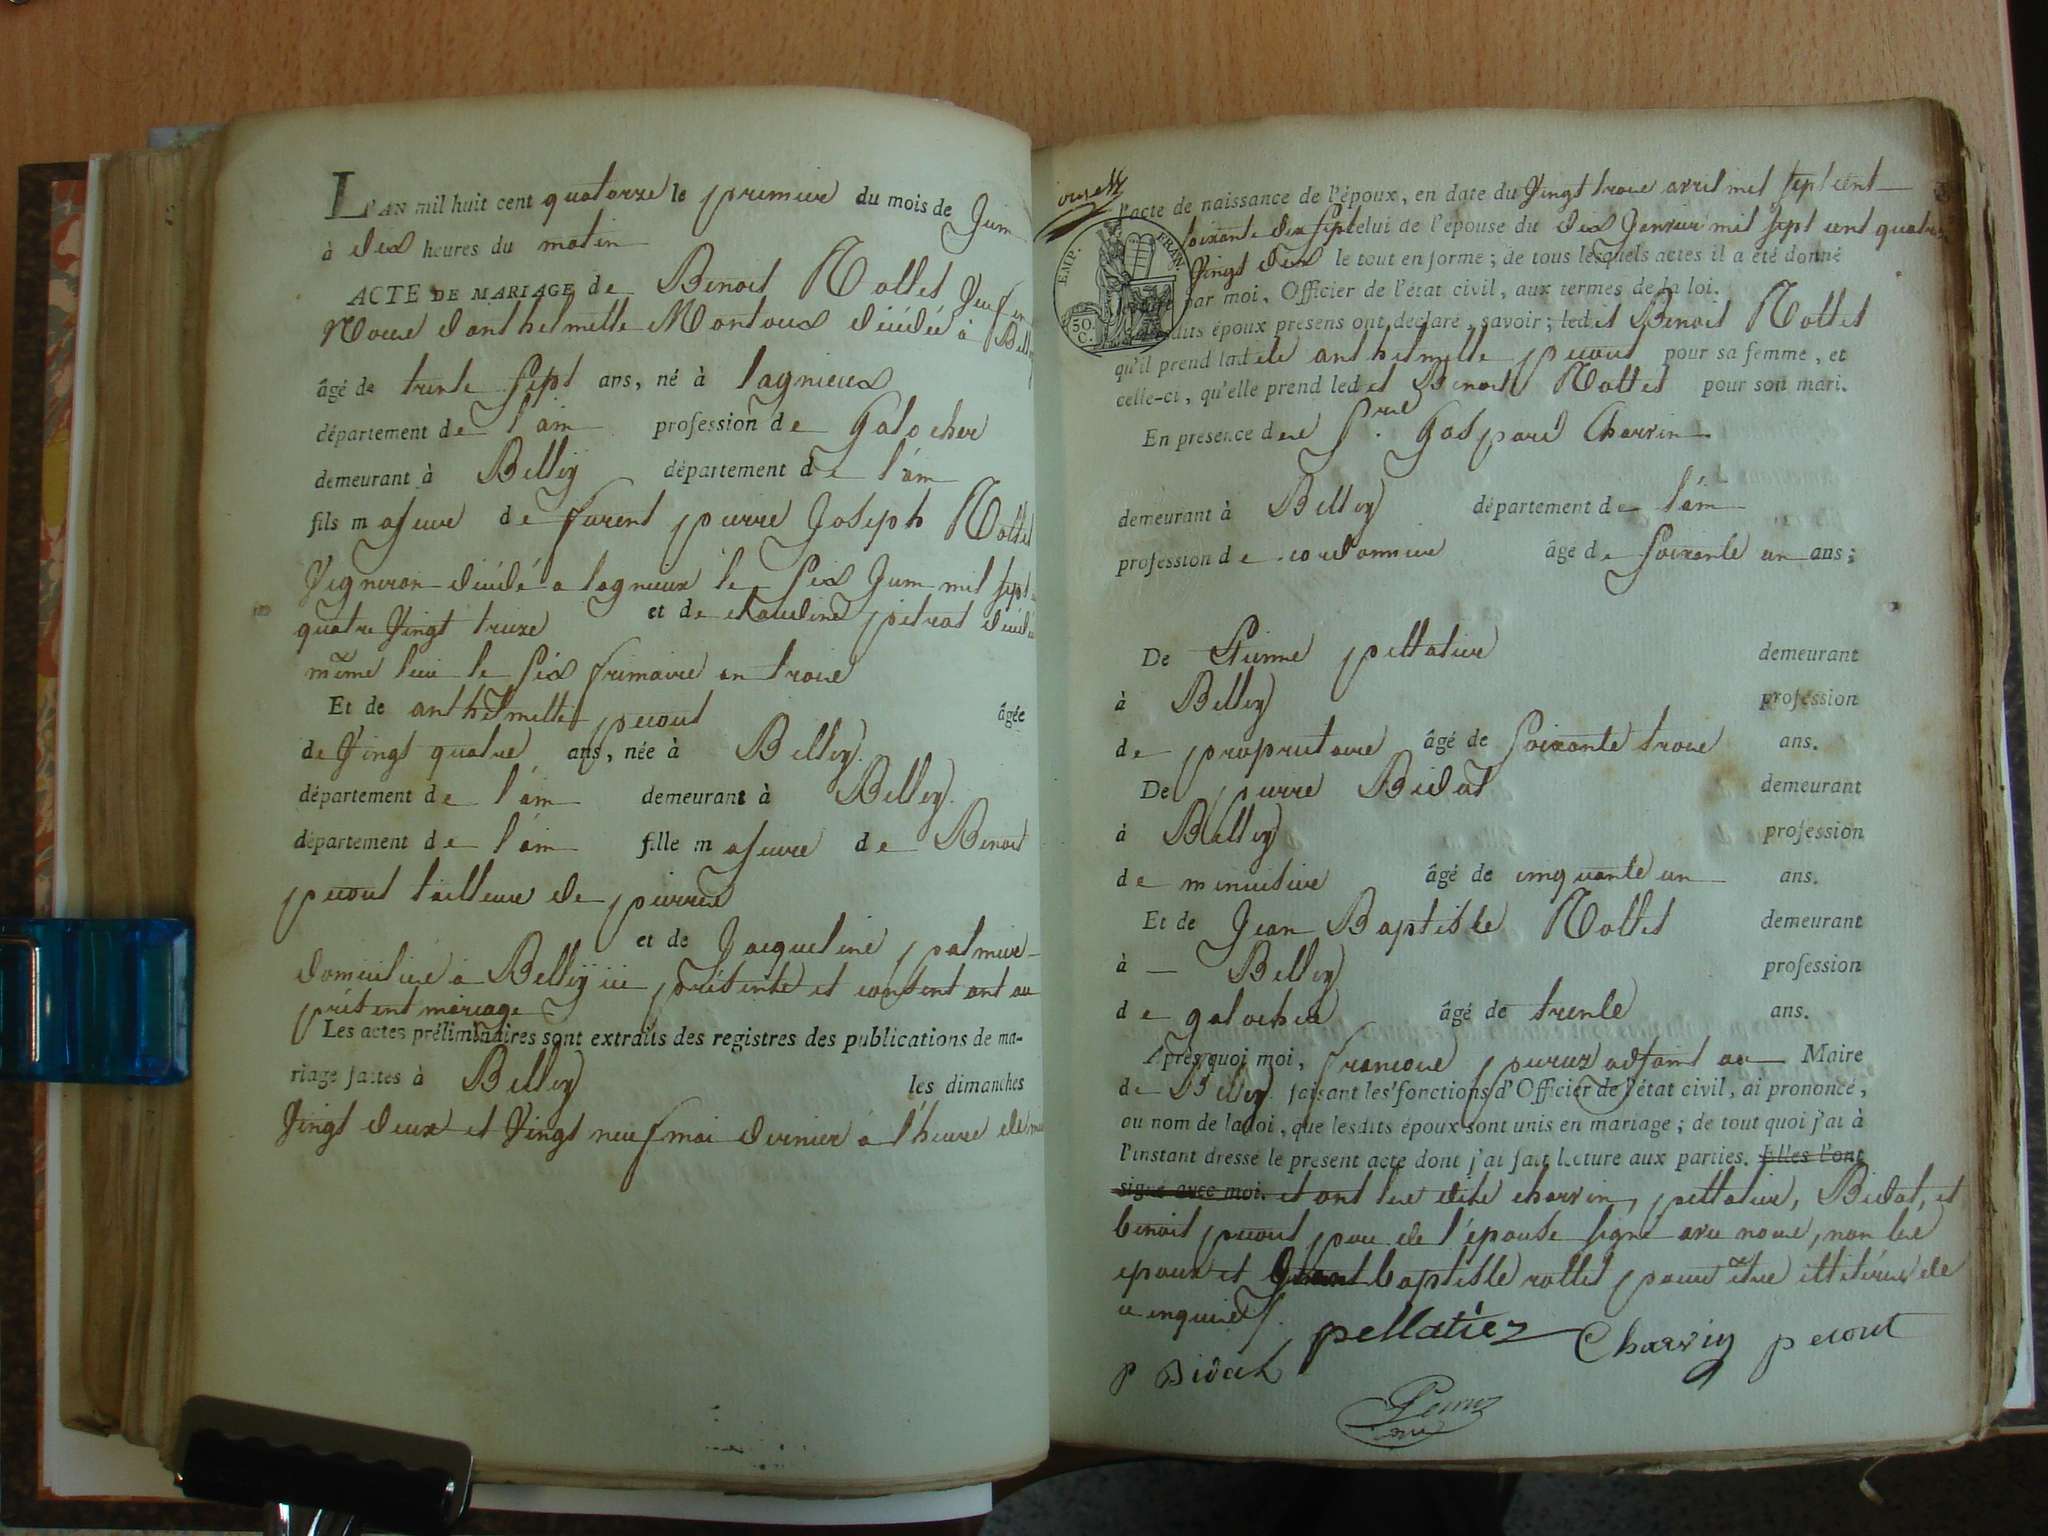 L'AN mil huit cent quatorze le premier du mois de Juin
à dix heures du matin
ACTE DE MARIAGE de Benoit Rollet Veuf en
Noces d'anthelmette Montoux décédée à Belley
âgé de trente sept ans, né à lagnieux
département de l'ain profession de Galocher
demeurant à Belleÿ département de l'ain
fils majeur de furent pierre Joseph Rollet
Vigneron décédé a lagnieux le six Juin mil sept
quatre Vingt treize et de claudine pitrat
même lieu le six frimaire an trois
Et de anthelmette picout âgée
de Vingt quatre ans, née à Belley
département de l'ain demeurant à Belley
département de l'ain fille majeure de Benoit
picout tailleur de pierres
et de Jacqueline palmier
domiciliée à Belleÿ ici présente et consentant au
présent mariage
Les actes préliminaires sont extraits des registres des publications de ma-
riage faites à Belley les dimanches
Vingt deux et Vingt neuf mai dernier à l'heure de
l'acte de naissance de l'époux, en date du Vingt trois avril mil sept cent
soixante dix sept celui de l'épouse du dix Janvier mil sept cent quatre
Vingt dix le tout en forme; de tous lesquels actes il a été donné
par moi, Officier de l'état civil, aux termes de la loi.
EMP. FRAN.
50. C.
dits époux présens ont déclaré, savoir; ledit Benoit Rollet
qu'il prend ladite anthelmette picout pour sa femme, et
celle-ci, qu'elle prend ledit Benoit Rollet pour son mari.
En présence de Gaspard Charvin
demeurant à Belley département de l'ain
profession de cordonnier âgé de soixante un ans;
De Etienne pellatier demeurant
à Belley profession
de proprietaire âgé de soixante trois ans.
De pierre Bidat demeurant
à Belley profession
de menuisier âgé de cinquante un ans.
Et de Jean Baptiste Rollet demeurant
à — Belley profession
de galocher âgé de trente ans.
Après quoi moi, françois adjoint au Maire
de Belley faisant les fonctions d'Officier de l'état civil, ai prononcé,
au nom de la loi, que lesdits époux sont unis en mariage; de tout quoi j'ai à
l'instant dressé le présent acte dont j'ai fait lecture aux parties. Elles l'ont
signé avec moi. et ont les dits charvin, pellatier, Bidat, et
benoit picout pere de l'épouse signé avec nous, non les
epoux et baptiste rollet pour être illitérés de
ce enquis
P Bidat pellatiez Charvin picout